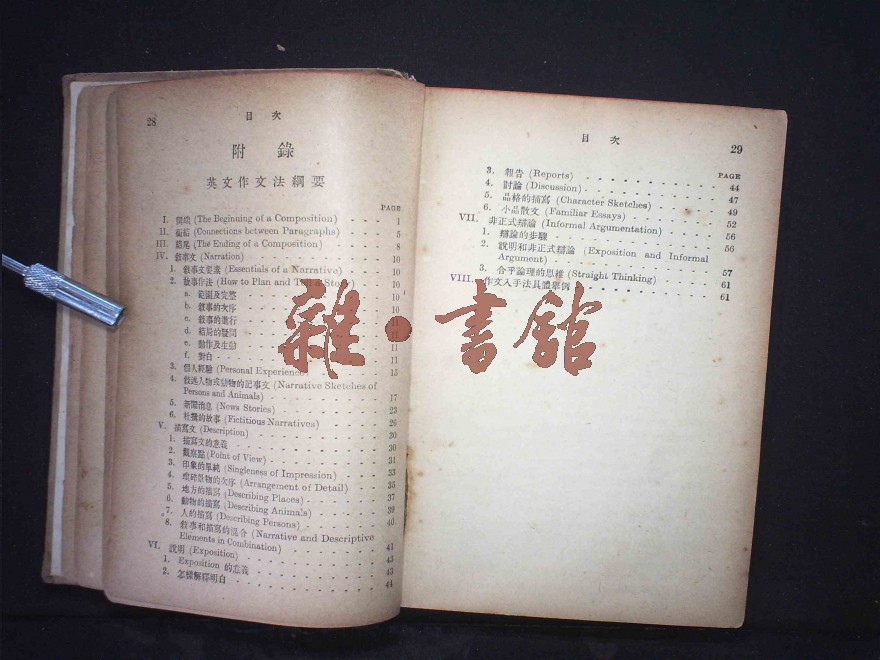 28
目 次
附 錄
英文作文法綱要
PAGE
I. 開端 (The Beginning of a Composition) 1
II. 銜結 (Connections between Paragraphs) 5
III. 結尾 (The Ending of a Composition) 8
IV. 敘事文 (Narration) 10
1. 敘事文要素 (Essentials of a Narrative) 10
2. 敘事作法 (How to Plan and Tell a Story) 10
a. 範圍及完整 10
b. 敘事的次序
c. 敘事的進行
d. 結局的疑問 11
e. 動作及生動 11
f. 對白 11
3. 個人經驗 (Personal Experience) 15
4. 敘述人物或動物的記事文 (Narrative Sketches of
Persons and Animals) 17
5. 新聞消息 (News Stories) 23
6. 杜撰的故事 (Fictitious Narratives) 26
V. 描寫文 (Description) 30
1. 描寫文的意義 30
2. 觀察點 (Point of View) 31
3. 印象的單純 (Singleness of Impression) 33
4. 瑣碎景物的次序 (Arrangement of Detail) 35
5. 地方的描寫 (Describing Places) 37
6. 動物的描寫 (Describing Animals) 39
7. 人的描寫 (Describing Persons) 40
8. 敘事和描寫的混合 (Narrative and Descriptive
Elements in Combination) 41
VI. 說明 (Exposition) 43
1. Exposition 的意義 43
2. 怎樣解釋明白 44
目 次
29
PAGE
3. 報告 (Reports) 44
4. 討論 (Discussion) 47
5. 品格的描寫 (Character Sketches) 49
6. 小品散文 (Familiar Essays) 52
VII. 非正式辯論 (Informal Argumentation) 56
1. 辯論的步驟 56
2. 說明和非正式辯論 (Exposition and Informal
Argument) 57
3. 合乎論理的思維 (Straight Thinking) 61
VIII. 作文入手法具體舉例 61
雜·書館